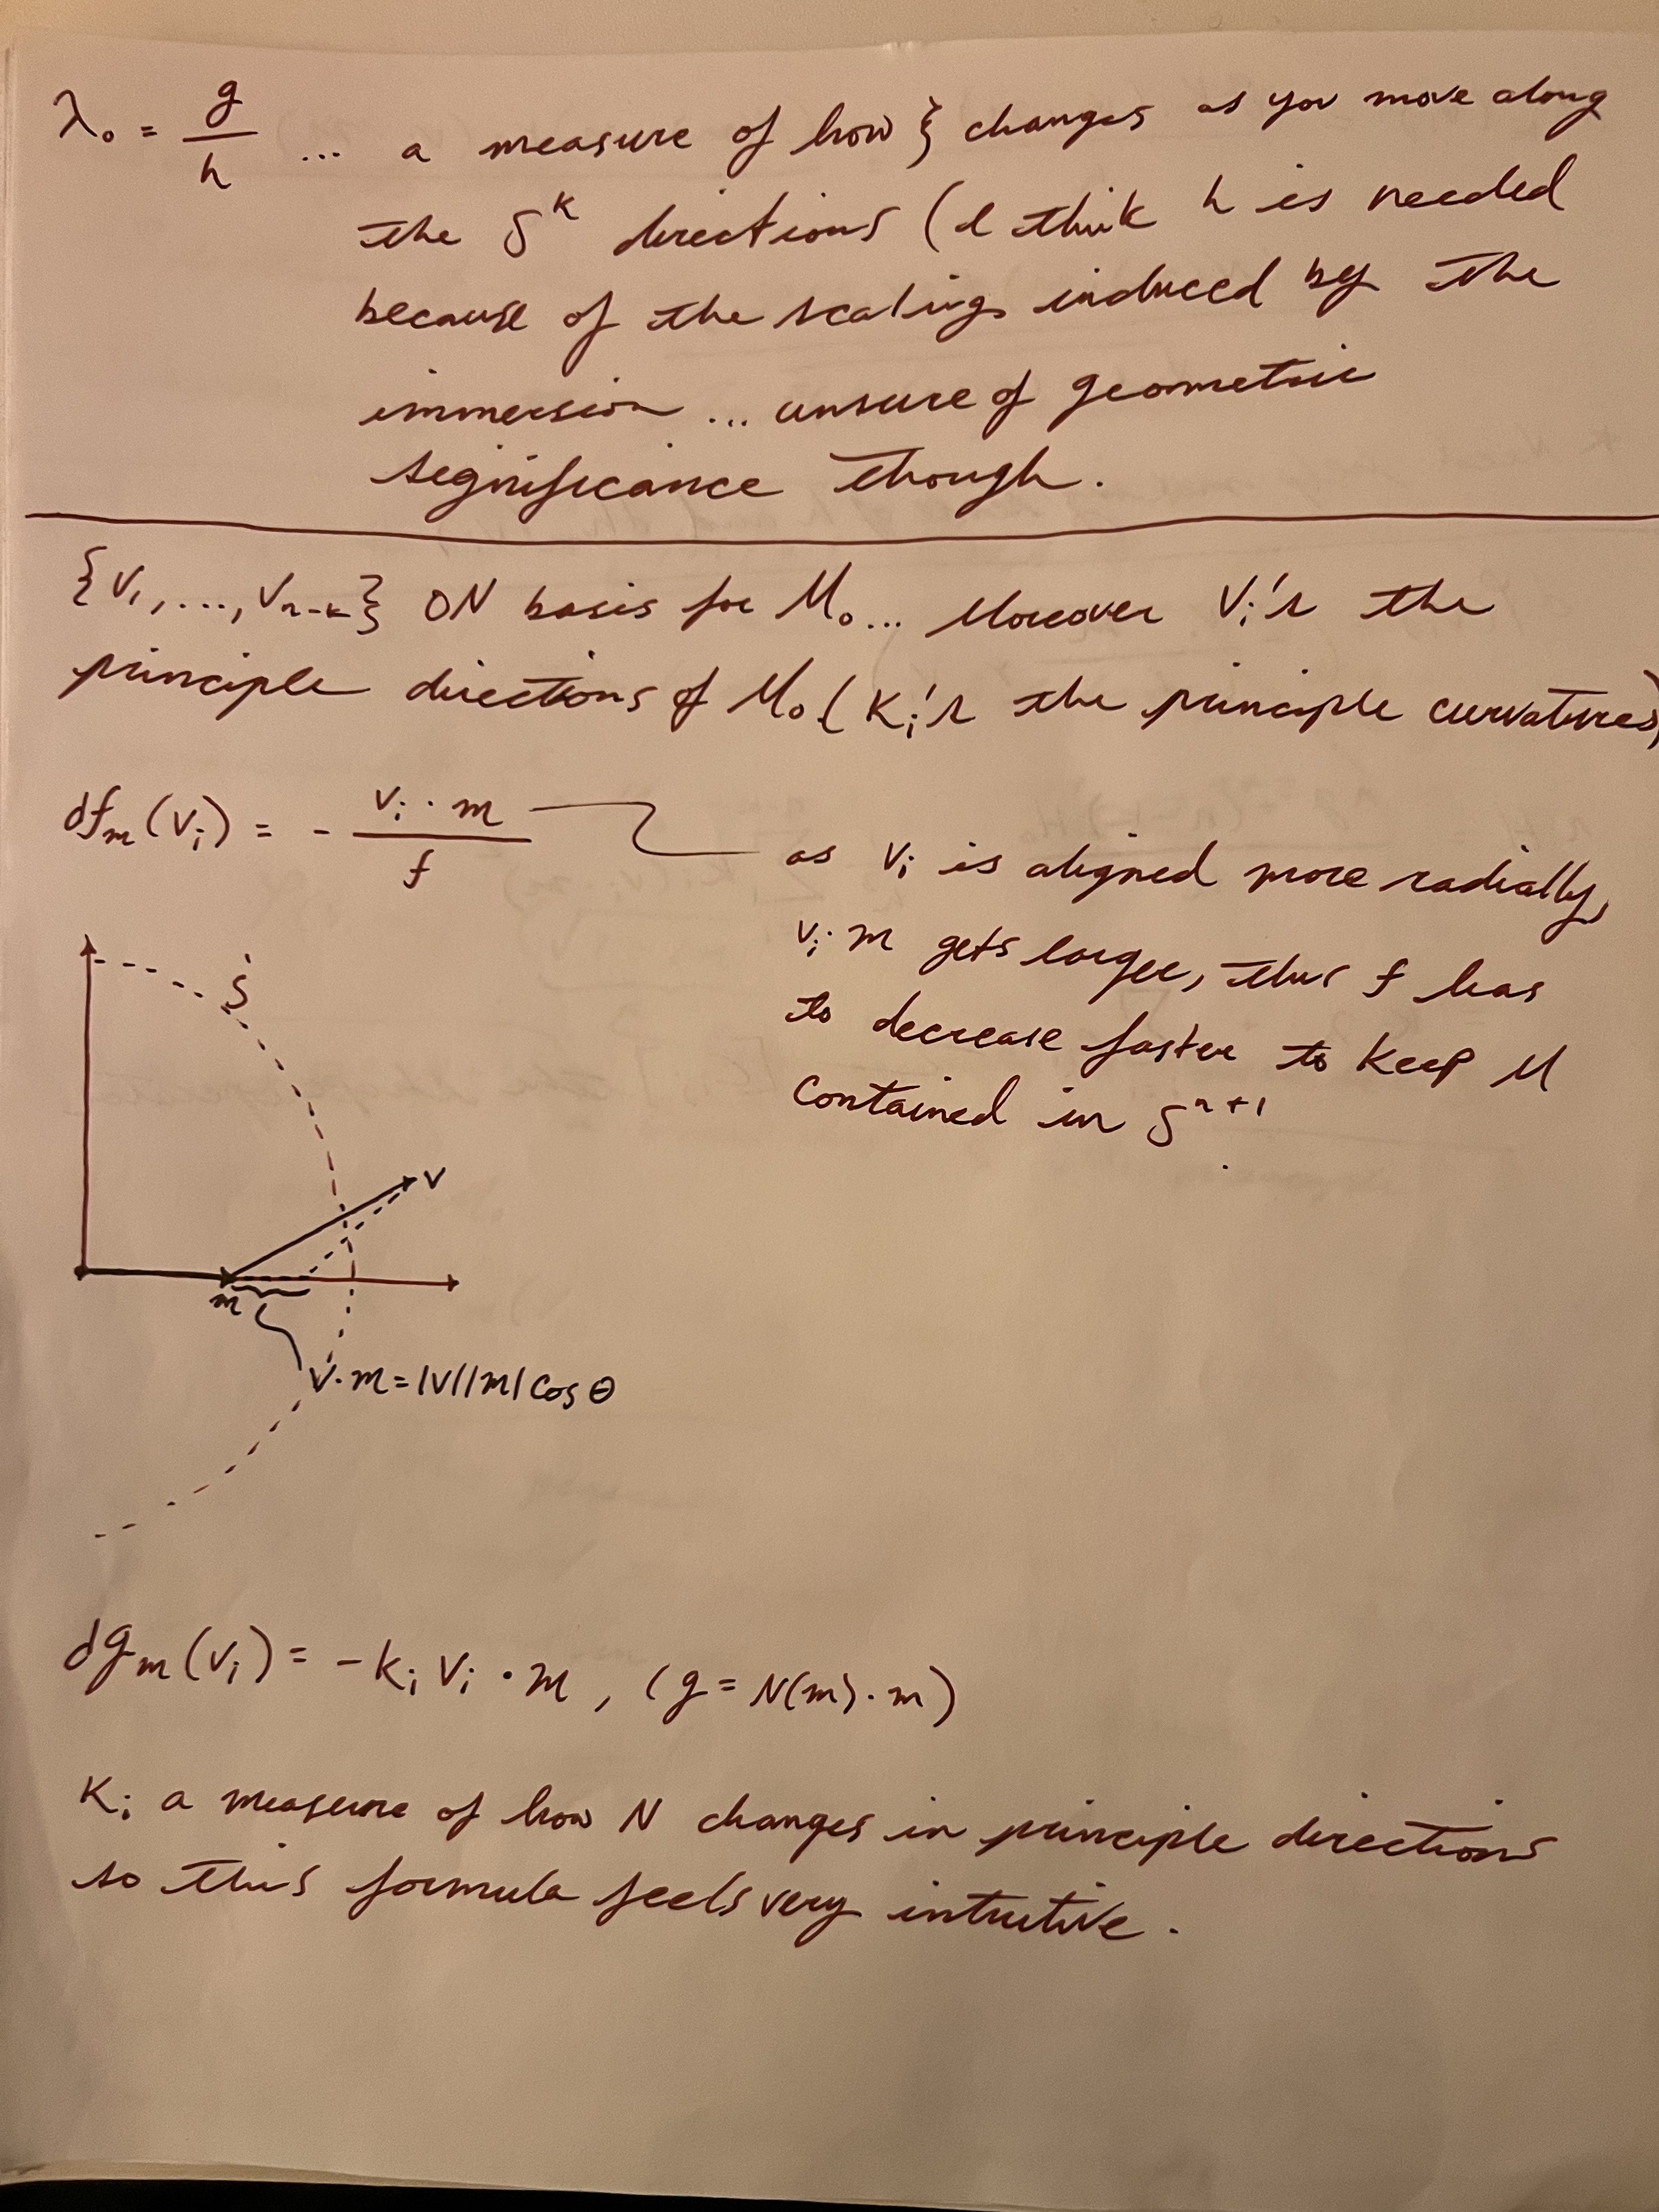 λ₀ = g/h ... a measure of how ξ changes as you move along
the Sᵏ directions (I think h is needed
because of the scaling induced by the
immersion ... unsure of geometric
significance though.
{v₁, ..., vₙ₋ₖ} ON basis for M₀... Moreover Vᵢ's the
principle directions of M₀ (Kᵢ's the principle curvatures)
dfₘ(vᵢ) = - vᵢ · m / f
as vᵢ is aligned more radially,
vᵢ · m gets larger, thus f has
to decrease faster to keep M
contained in Sⁿ⁺¹
S
v
m
v·m = |v||m| cos θ
dgₘ(vᵢ) = -kᵢ vᵢ · m, (g = N(m) · m)
Kᵢ a measure of how N changes in principle directions
so this formula feels very intuitive.